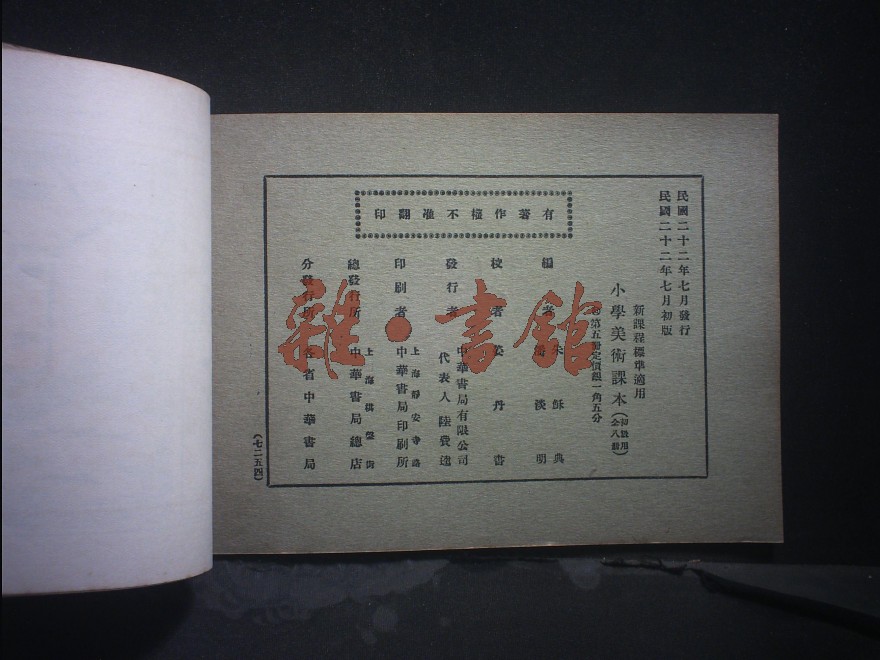 民國二十二年七月發行
民國二十二年七月初版
新課程標準適用
小學美術課本(初級用 全八册)
第五册定價銀一角五分
有著作權不准翻印
編者 朱穌典 潘淡明
校者 姜丹書
發行者 中華書局有限公司
代表人 陸費逵
印刷者 上海靜安寺路
中華書局印刷所
總發行所 上海棋盤街
中華書局總店
分發行所 各省中華書局
(七二五四)
雜·書館